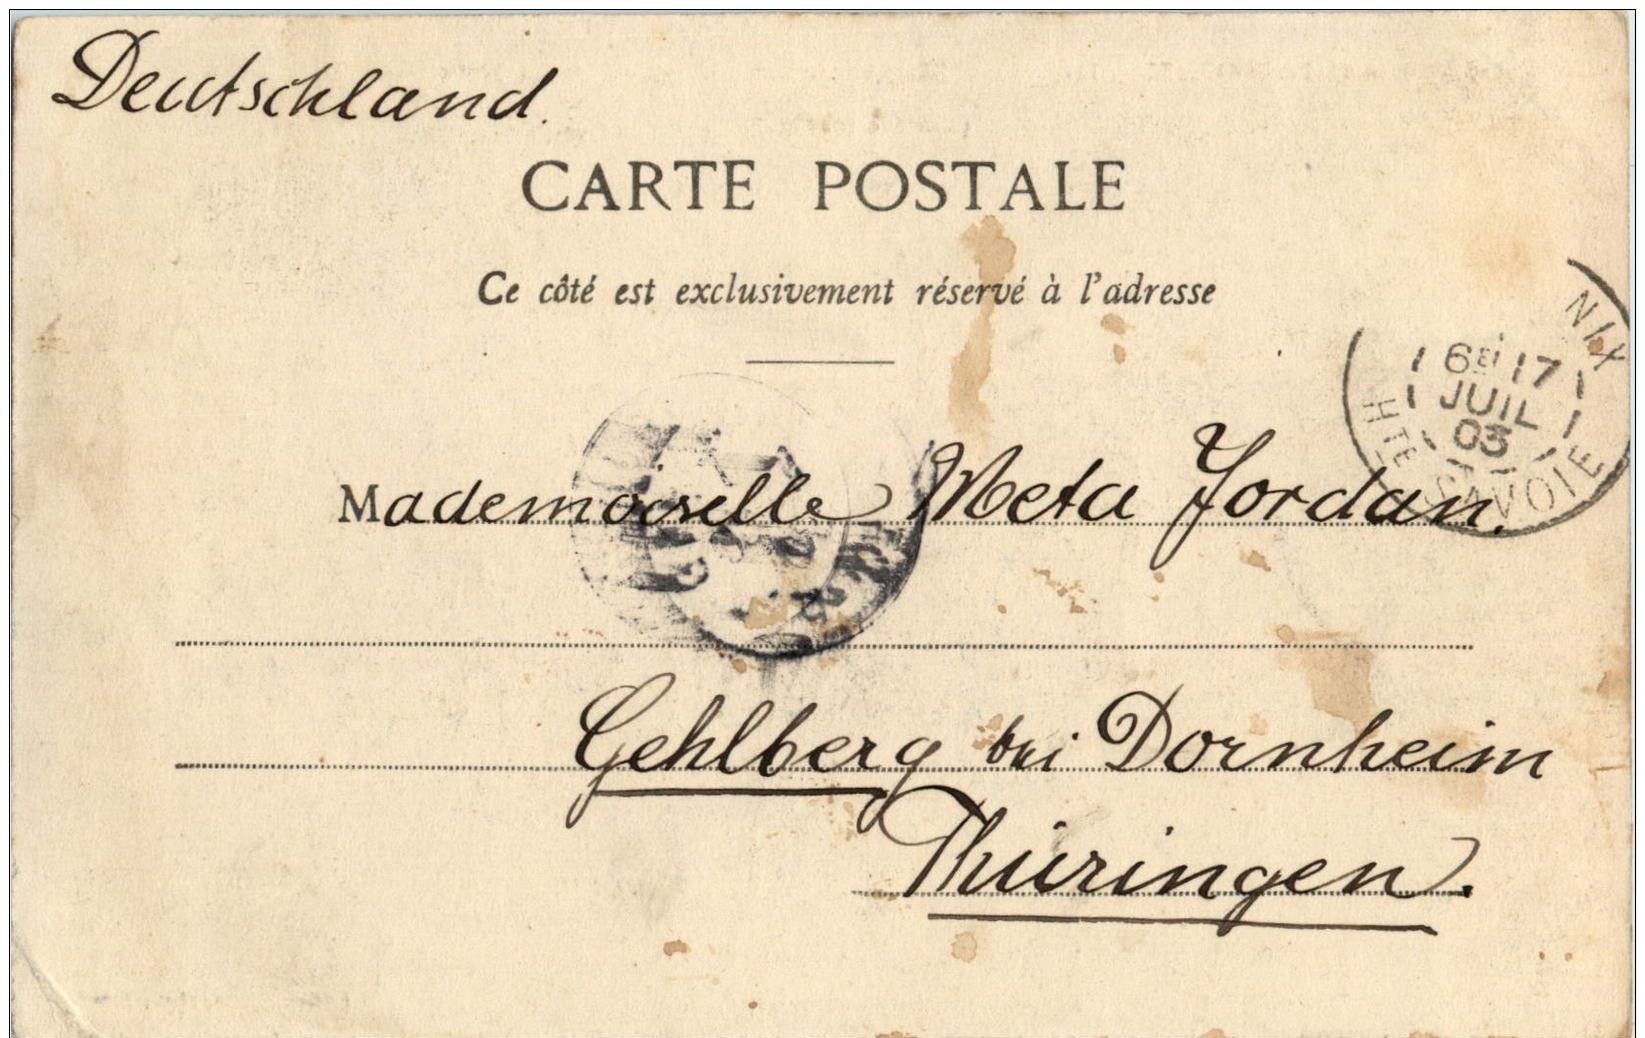 Deutschland.
CARTE POSTALE
Ce côté est exclusivement réservé à l'adresse
NIX
6E 17
JUIL
03
HTE SAVOIE
Mademoiselle Meta Jordan.
Gehlberg bei Dornheim
Thüringen.